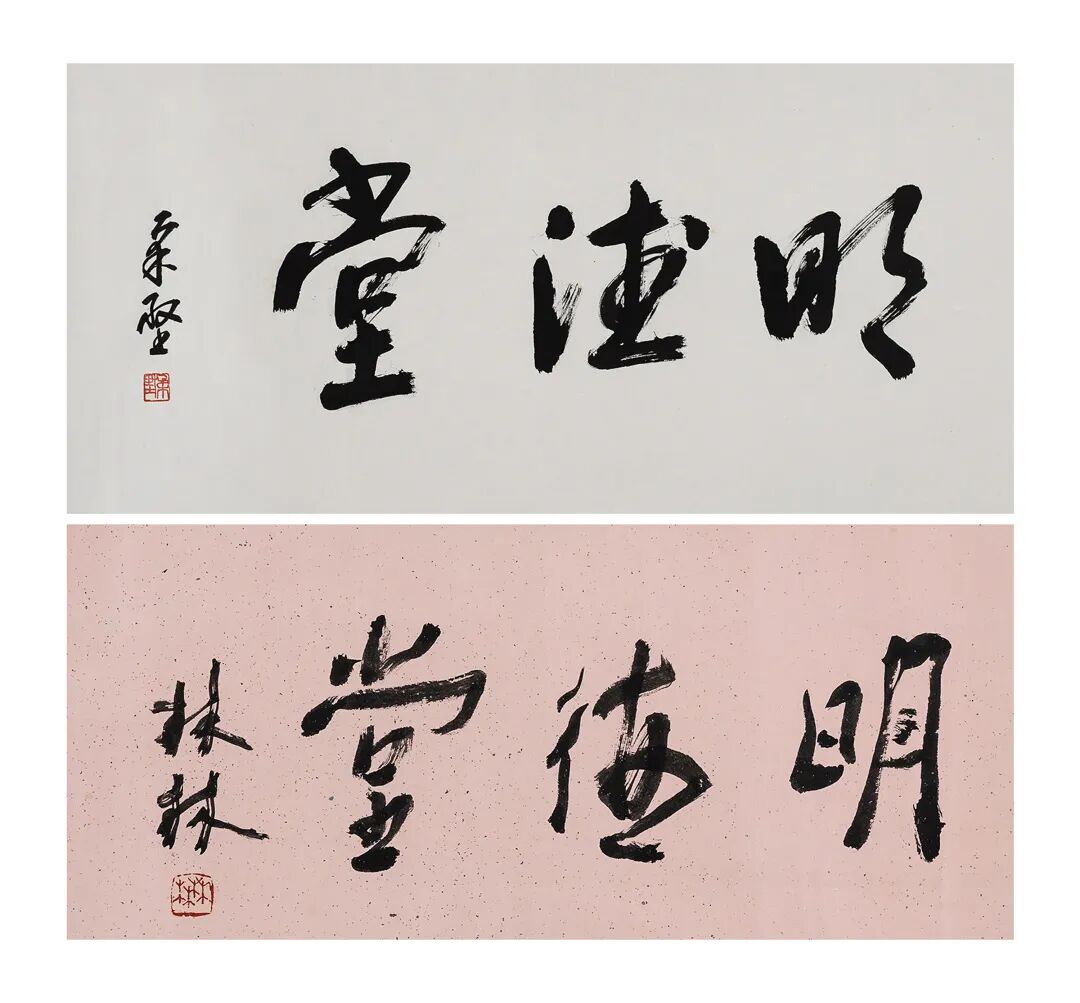 明德堂
明德堂
林林